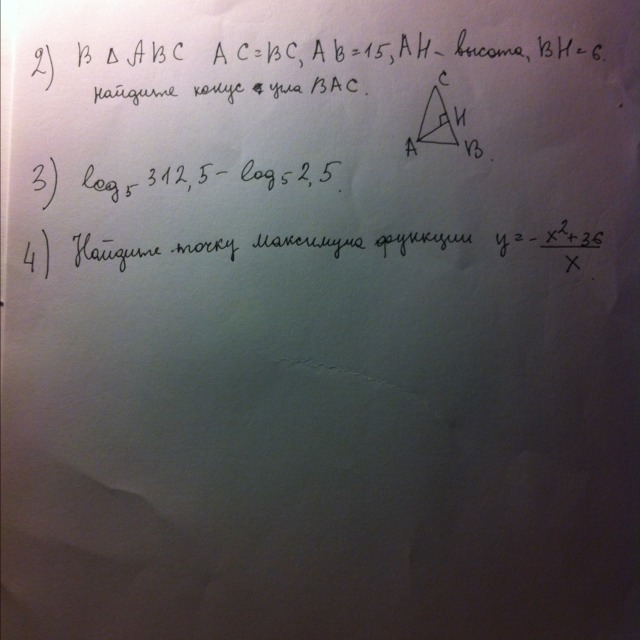 2) В Δ ABC AC=BC, AB=15, AH - высота, BH=6.
найдите конус угла BAC.
C
H
A
B
3) log₅ 312,5 - log₅ 2,5.
4) Найдите точку максимума функции y = - x²+36 / x